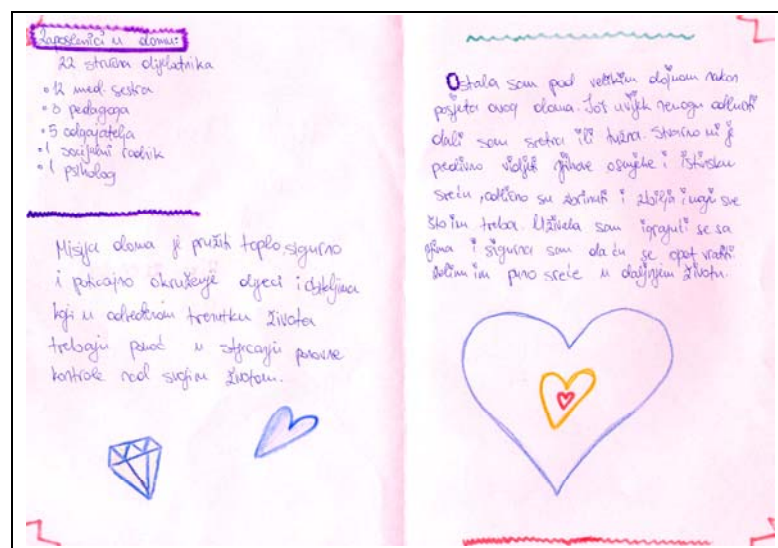 Zaposlenici u domu:
22 stručna dijelatnika
• 12 med. sestra
• 3 pedagoga
• 5 odgajatelja
• 1 socijalni radnik
• 1 psiholog
Misija doma je pružiti toplo, sigurno
i poticajno okruženje djeci i obiteljima
koji u određenom trenutku života
trebaju pomoć u stjecanju ponovne
kontrole nad svojim životom.
Ostala sam pod velikim dojmom nakon
posjeta ovog doma. Još uvijek nemogu odlučiti
dali sam sretna ili tužna. Stvarno mi je
predivno vidjeti njihove osmjehe i iskrenu
sreću, odlično su zbrinuti i zbilja imaju sve
što im treba. Uživala sam igrajući se sa
njima i sigurna sam da ću se opet vratiti
želim im puno sreće u daljnjem životu.